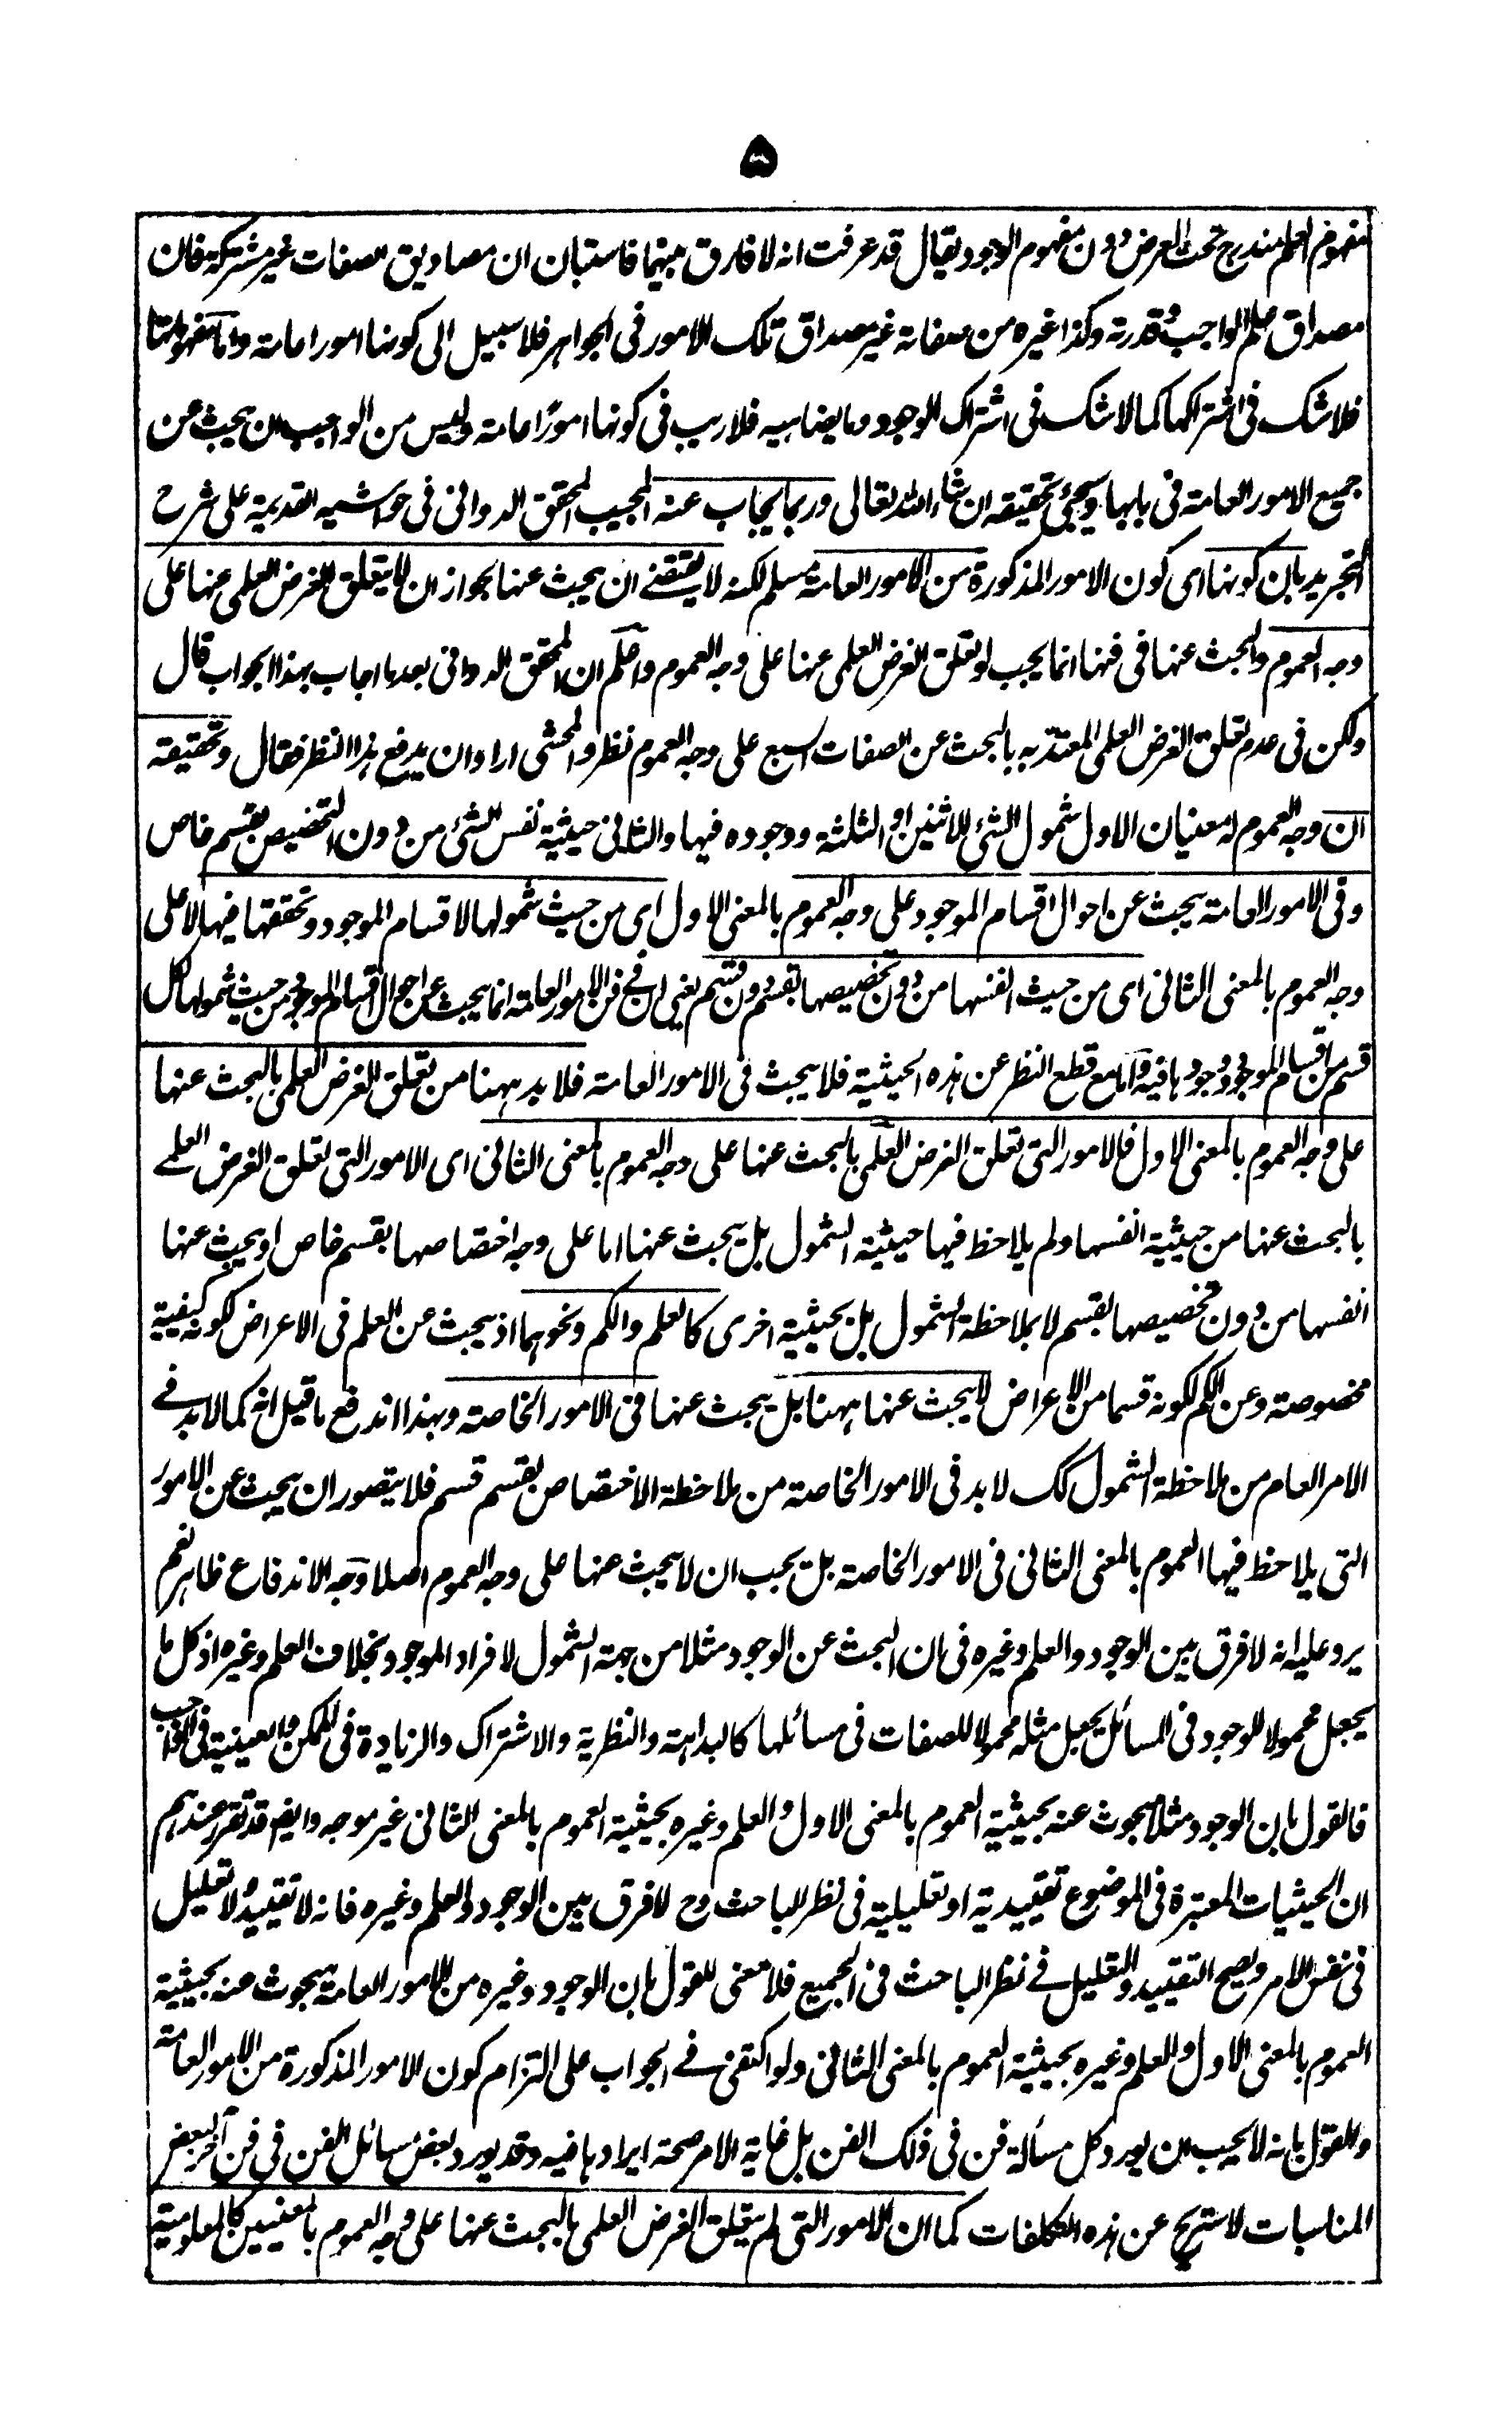 ۵
مفهوم العلم مندرج تحت العرض دون مفهوم الوجود يقال قد عرفت انه لا فارق بينهما فاستبان ان مصاديق الصفات غير مشتركة فان
مصداق علم الواجب وقدرته وكذا غيره من صفاته غير مصداق تلك الامور فى الجواهر فلا سبيل الى كونها امورا عامة واما مفهوماتها
فلا شك فى اشتراكها كما لا شك فى اشتراك الوجود وما يضاهيه فلا ريب فى كونها امورًا عامة وليس من الواجب ان يبحث عن
جميع الامور العامة فى بابها ويجئ تحقيقه ان شاء الله تعالى وربما يجاب عنه المجيب المحقق الدوانى فى حواشيه القديمة على شرح
التجريد بان كونها اى كون الامور المذكورة من الامور العامة مسلم لكنه لا يقتضے ان يبحث عنها بجواز ان لا يتعلق الغرض العلمى عنها على
وجه العموم والبحث عنها فى فنها انما يجب لو تعلق الغرض العلمى عنها على وجه العموم واعلم ان المحقق الدوانى بعد ما اجاب بهذا الجواب قال
ولكن فى عدم تعلق الغرض العلمى المعتد به بالبحث عن الصفات السبع على وجه العموم نظر والمحشى اراد ان يدفع هذا النظر فقال وتحقيقه
ان وجه العموم له معنيان الاول شمول الشئ للاثنين او الثلثة ووجوده فيها والثانى حيثية نفس الشئ من دون التخصيص بقسم خاص
وفى الامور العامة يبحث عن احوال اقسام الموجود على وجه العموم بالمعنى الاول اى من حيث شمولها لاقسام الموجود وتحققها فيها لا على
وجه العموم بالمعنى الثانى اى من حيث انفسها من دون تخصيصها بقسم دون قسم يعنى ان فى فن الامور العامة انما يبحث عن احوال اقسام الموجود من حيث شمولها لكل
قسم من اقسام الموجود ووجودها فيه واما مع قطع النظر عن هذه الحيثية فلا يبحث فى الامور العامة فلا بد ههنا من تعلق الغرض العلمى بالبحث عنها
على وجه العموم بالمعنى الاول فالامور التى تعلق الغرض العلمى بالبحث عنها على وجه العموم بالمعنى الثانى اى الامور التى تعلق الغرض العلمے
بالبحث عنها من حيثية انفسها ولم يلاحظ فيها حيثية الشمول بل يبحث عنها اما على وجه اختصاصها بقسم خاص او يبحث عنها
انفسها من دون تخصيصها بقسم لا بملاحظة الشمول بل بحيثية اخرى كالعلم والكم ونحوهما اذ يبحث عن العلم فى الاعراض لكونه كيفية
مخصوصة وعن الكم لكونه قسما من الاعراض لا يبحث عنها ههنا بل يبحث عنها فى الامور الخاصة وبهذا اندفع ما قيل انه كما لا بد فے
الامر العام من ملاحظة الشمول كك لا بد فى الامور الخاصة من ملاحظة الاختصاص بقسم قسم فلا يتصور ان يبحث عن الامور
التى يلاحظ فيها العموم بالمعنى الثانى فى الامور الخاصة بل يجب ان لا يبحث عنها على وجه العموم اصلا وجه الاندفاع ظاهر نعم
يرد عليه انه لا فرق بين الوجود والعلم وغيره فى ان البحث عن الوجود مثلا من جهة الشمول لافراد الموجود بخلاف العلم وغيره اذ كل ما
يجعل محمولا للوجود فى المسائل يجعل مثله محمولا للصفات فى مسائلها كالبداهة والنظرية والاشتراك والزيادة فى الممكن والعينية فى الواجب
فالقول بان الوجود مثلا مبحوث عنه بحيثية العموم بالمعنى الاول والعلم وغيره بحيثية العموم بالمعنى الثانى غير موجه وايضا قد تقرر عندهم
ان الحيثيات المعتبرة فى الموضوع تقييدية او تعليلية فى نظر الباحث وح لا فرق بين الوجود والعلم وغيره فانه لا تقييد ولا تعليل
فى نفس الامر ويصح التقييد والتعليل فے نظر الباحث فى الجميع فلا معنى للقول بان الوجود وغيره من الامور العامة مبحوث عنه بحيثية
العموم بالمعنى الاول والعلم وغيره بحيثية العموم بالمعنى الثانى ولو اكتفى فے الجواب على التزام كون الامور المذكورة من الامور العامة
والقول بانه لا يجب ان يورد كل مسألة فن فى ذلك الفن بل غاية الامر صحة ايرادها فيه وقد يورد بعض مسائل الفن فى فن آخر لبعض
المناسبات لاستريح عن هذه التكلفات كما ان الامور التى لم يتعلق الغرض العلمى بالبحث عنها على وجه العموم بالمعنيين كالمعلومية